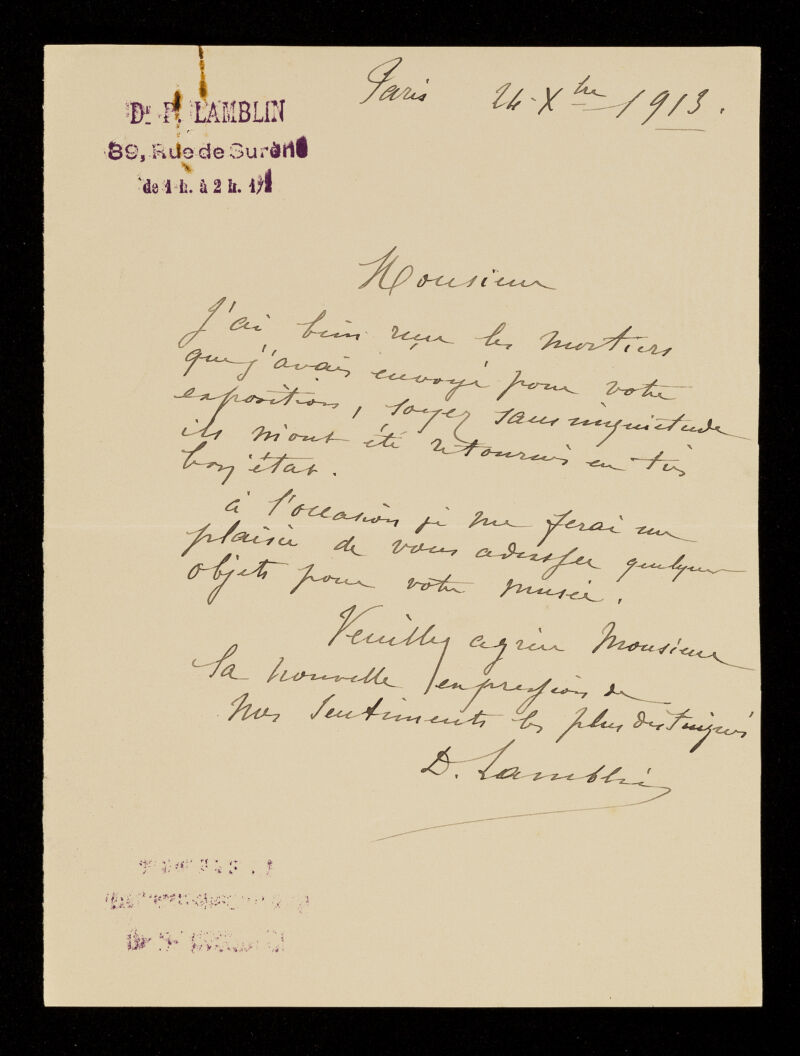 Dr P. LAMBLIN
89, Rue de Surène
de 1 h. à 2 h. 1/2
Paris 24 Xbre 1913.
Monsieur
J'ai bien reçu les mortiers
que j'avais envoyé pour votre
exposition, soyez sans inquietude
ils m'ont été retournés en très
bon état.
à l'occasion je me ferai un
plaisir de vous adresser quelques
objets pour votre musée.
Veuillez agréer Monsieur
la nouvelle expression de
mes sentiments les plus distingués
D. Lamblin